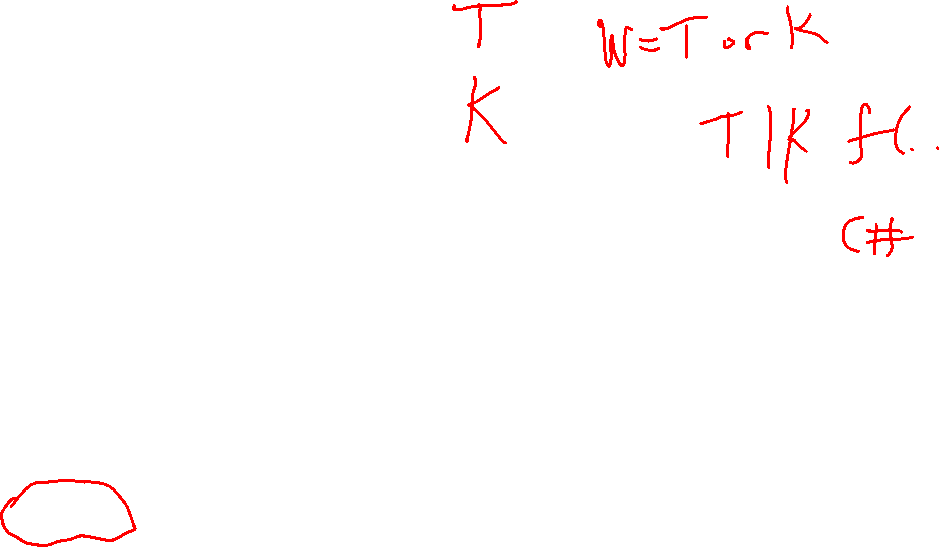 T
W=T or K
K
T|K f(..
C#